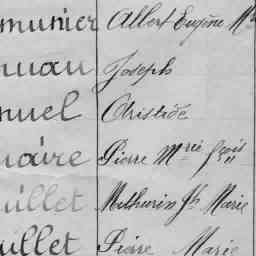 munier Albert Eugène Mie
nuau Joseph
nuel Aristide
uaire Pierre Mrie Fçois
uillet Mathurin Jh Marie
uillet Pierre Marie